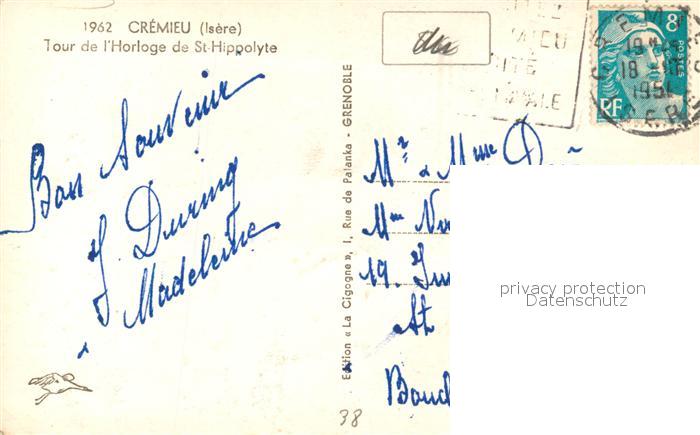 1962 CRÉMIEU (Isère)
Tour de l'Horloge de St-Hippolyte
Bon Souvenir
J. During
Madeleine
Edition « La Cigogne », 1, Rue de Palanka - GRENOBLE
8F
POSTES
RF
19H
18
1951
Mr & Mme D
Mme
19.
St
38
privacy protection
Datenschutz